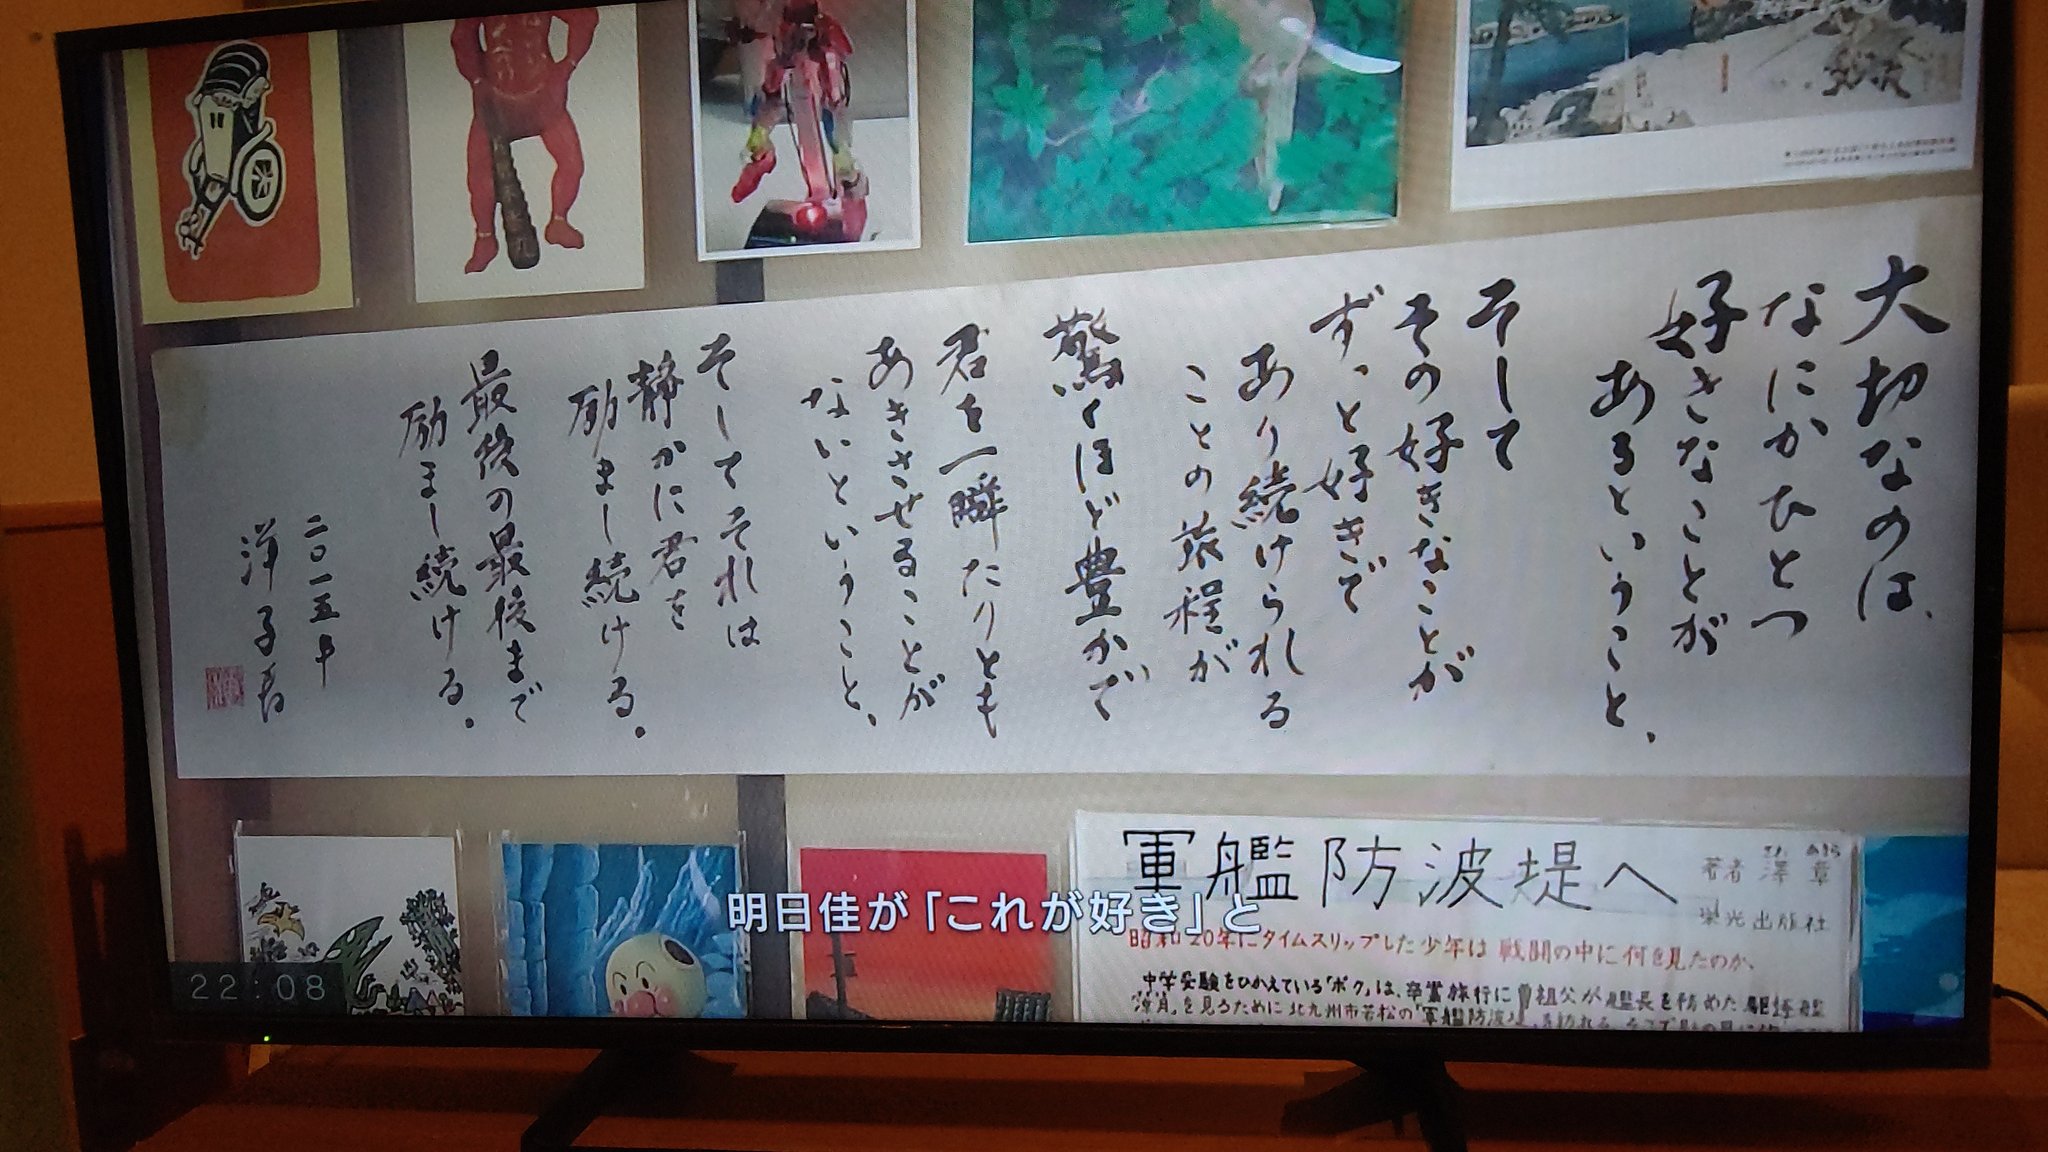 大切なのは、
なにかひとつ
好きなことが
あるということ、
そして
その好きなことが
ずっと好きで
あり続けられる
ことの旅程が
驚くほど豊かで
君を一瞬たりとも
あきさせることが
ないということ、
そしてそれは
静かに君を
励まし続ける。
最後の最後まで
励まし続ける。
二〇一五年
洋子書
軍艦防波堤へ
著者 澤 章
栄光出版社
昭和20年にタイムスリップした少年は 戦闘の中に何を見たのか、
中学受験をひかえている「ボク」は、卒業旅行に曽祖父が艦長を務めた駆逐艦
「涼月」を見るために北九州市若松の「軍艦防波
明日佳が「これが好き」と
22:08